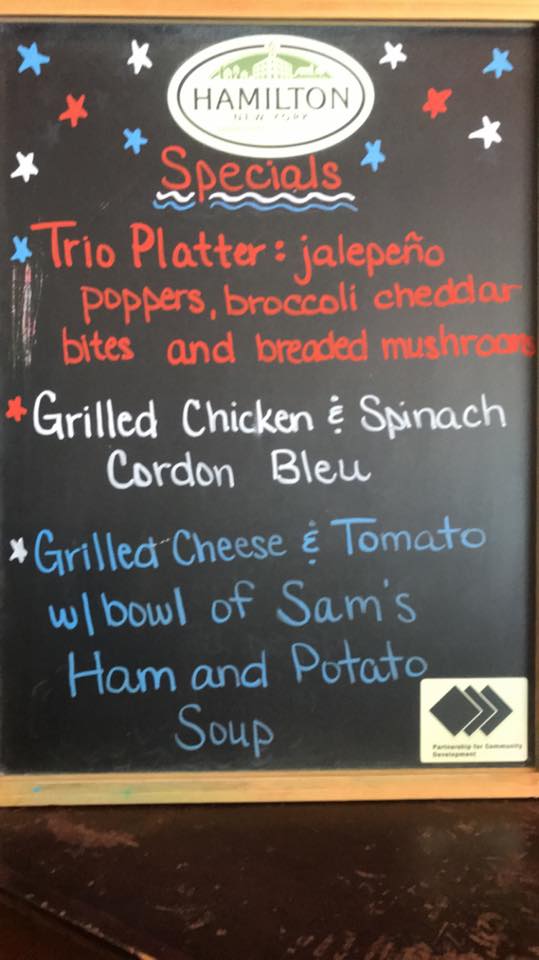 HAMILTON
NEW YORK
Specials
Trio Platter: jalepeño
poppers, broccoli cheddar
bites and breaded mushrooms
Grilled Chicken & Spinach
Cordon Bleu
Grilled Cheese & Tomato
w/ bowl of Sam's
Ham and Potato
Soup
Partnership for Community
Development